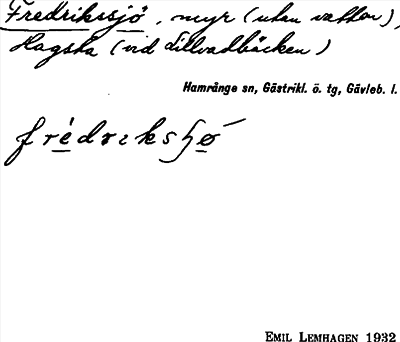 Fredrikssjö, myr (utan vatten),
Hagsta (vid Lillvadbäcken)
Hamrånge sn, Gästrikl. ö. tg, Gävleb. l.
frédrɩksɧø
EMIL LEMHAGEN 1932